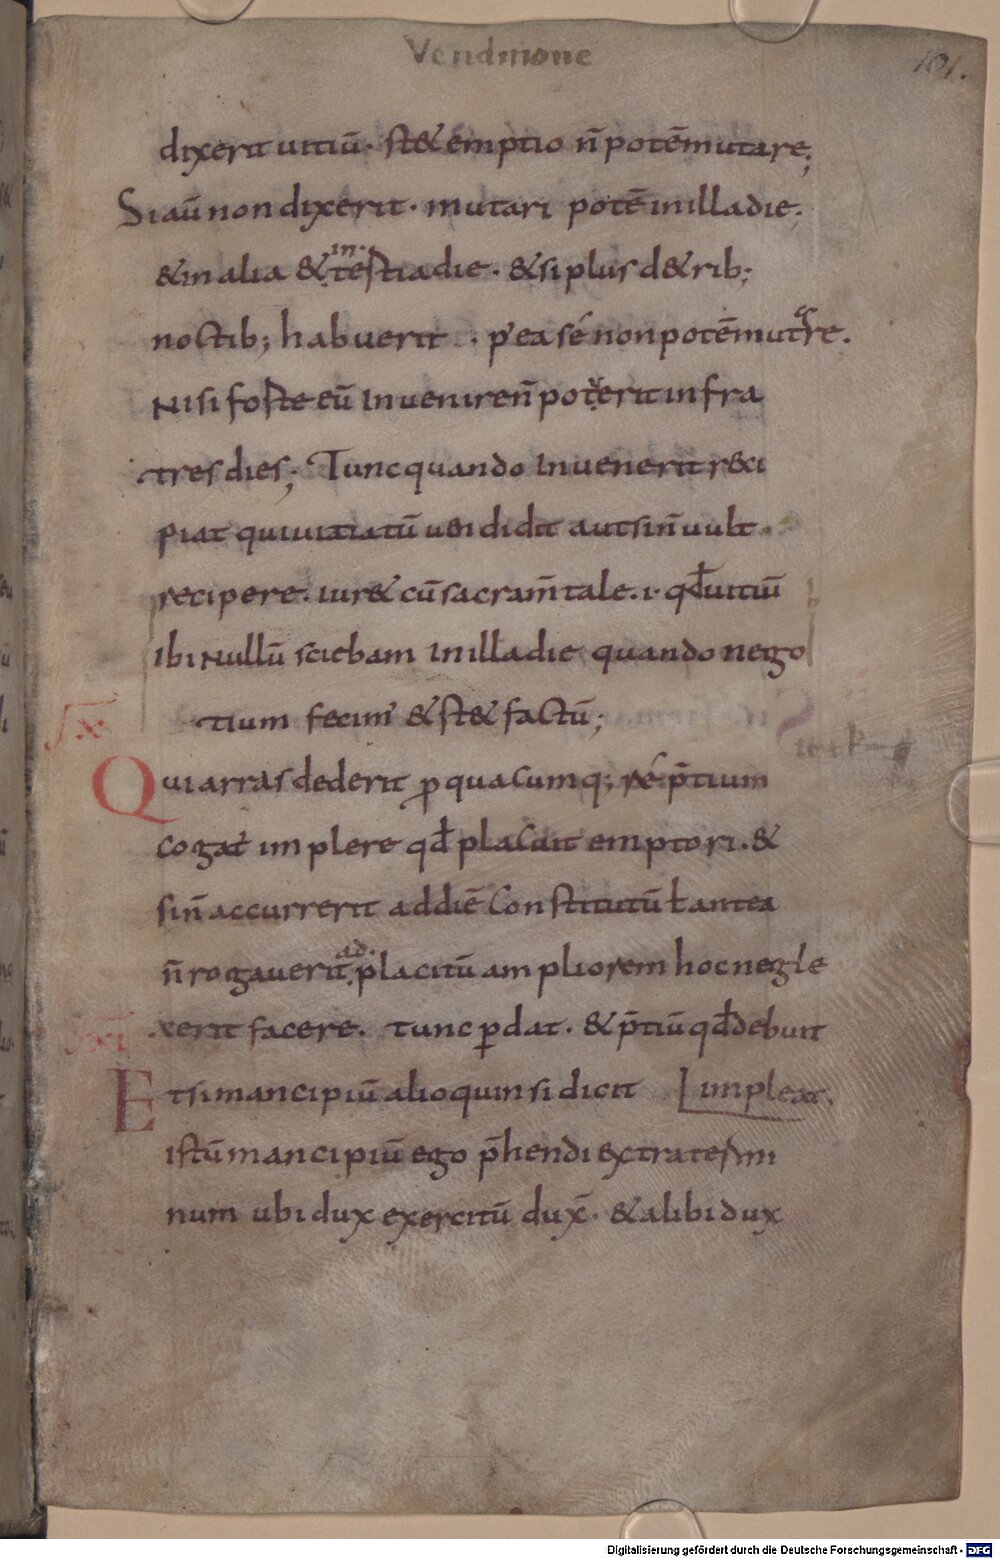 Venditione
101.
dixerit uitiū. st& emptio n̄ potē mutare;
Si aū non dixerit. mutari potē in illa die.
& in alia & in tertia die. & si plus d& rib;
noctib; habuerit. p' ea sé non potē mutare.
Nisi foste eū Inuenire n̄ poterit infra
tres dies; Tunc quando Inuenerit reci
piat qui uitiatū uendidit aut si n̄ uult
recipere. iur& cū sacram̄tale. i. qđ uitiū
Ibi Nullū sciebam In illa die quando nego
tium fecim' & st& factū;
Qui arras dederit p quacumq; ré p̄tium
cogat' implere qđ placuit emptori. &
si n̄ accurrerit ad diē Constitutū ł antea
n̄ rogauerit ad placitū ampliorem hoc negle
xerit facere. tunc pdat. & p̄tiū qđ debuit
Et si mancipiū alio quin si dicit impleat.
istū mancipiū ego p̄hendi extra termi
num ubi dux exercitū dux̄. & alibi dux
Digitalisierung gefördert durch die Deutsche Forschungsgemeinschaft - DFG